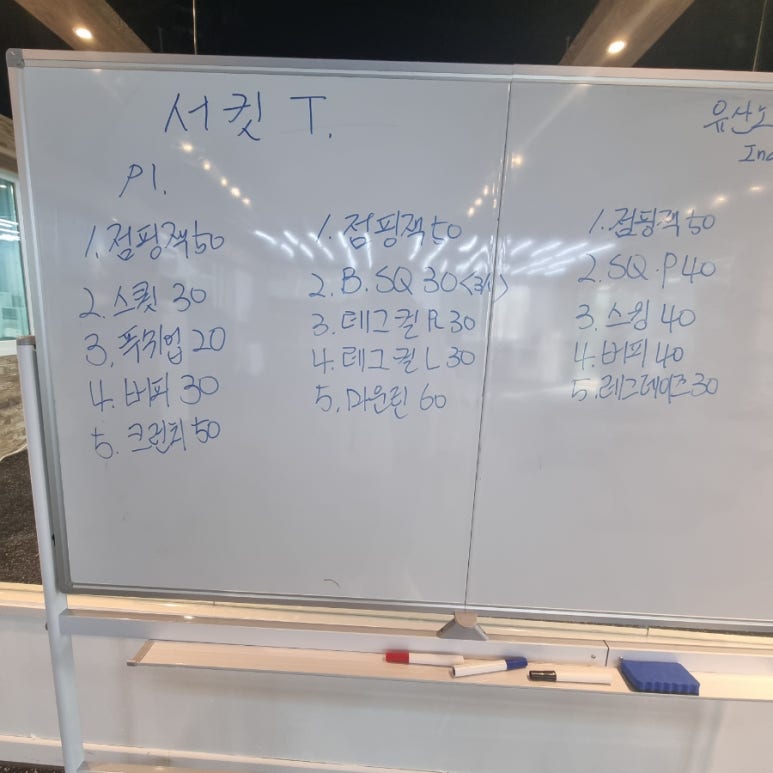 서킷 T.
P1.
1. 점핑잭 50
2. 스퀏 30
3. 푸쉬업 20
4. 버피 30
5. 크런치 50
1. 점핑잭 50
2. B.SQ 30
3. 테그컬 R 30
4. 테그컬 L 30
5. 마운틴 60
유산소
1. 점핑잭 50
2. SQ.P 40
3. 스윙 40
4. 버피 40
5. 레그레이즈 30